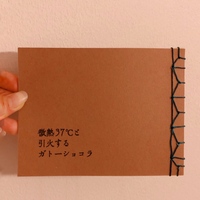 微熱37℃と
引火する
ガトーショコラ